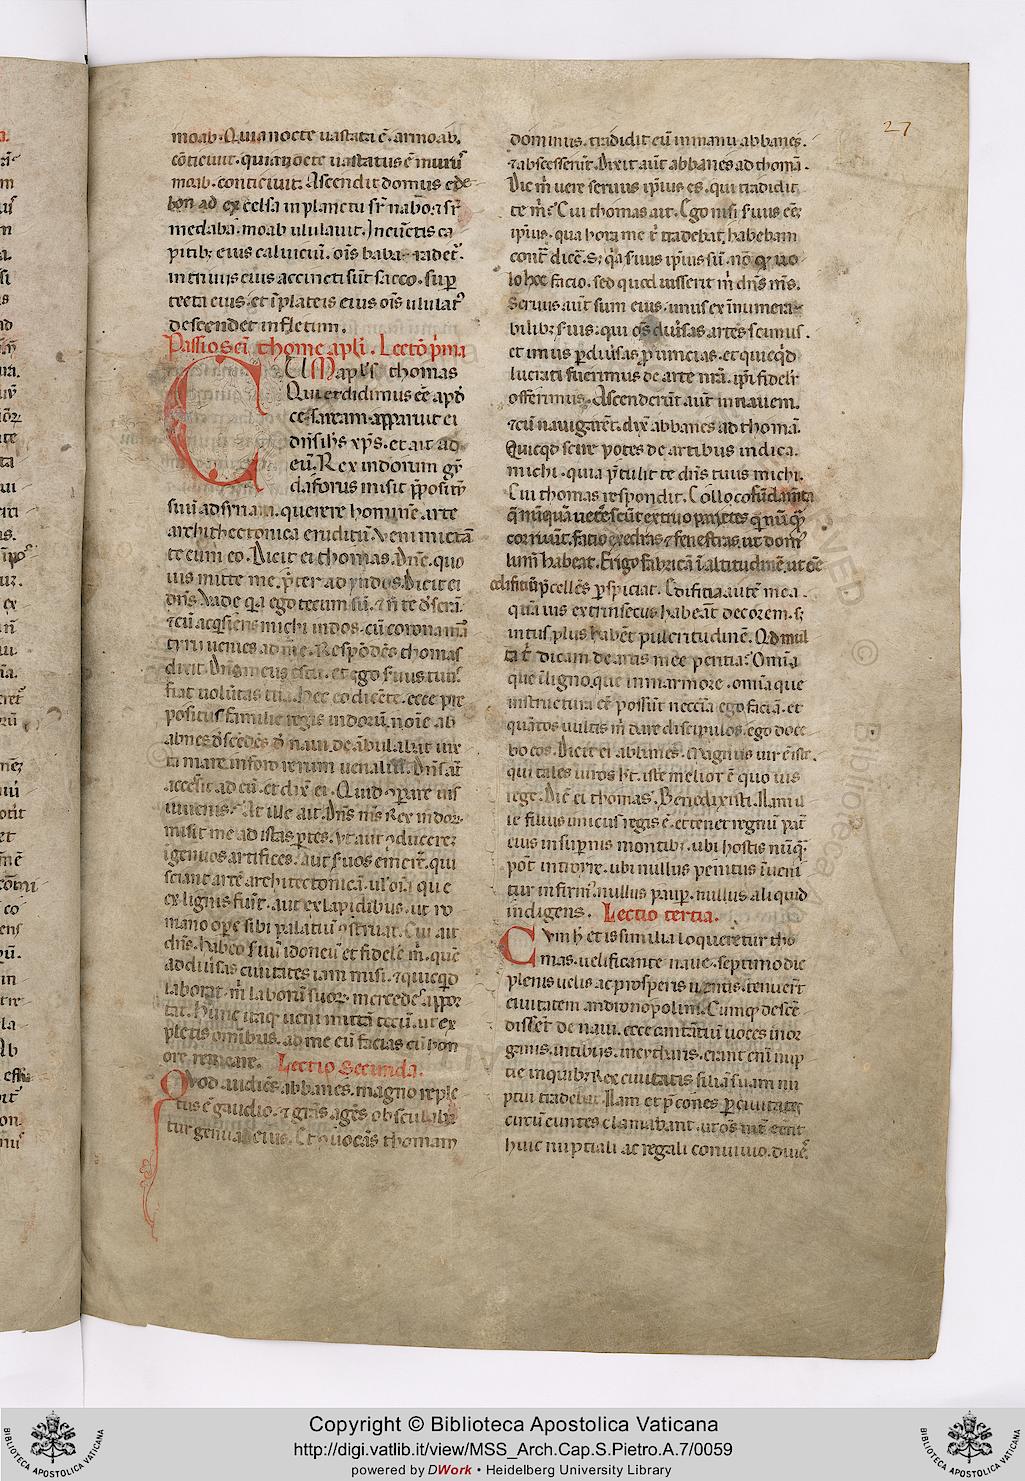 27
moab. Quia nocte uastata ē. ar moab.
cōticuit. quia nocte uastatus ē murus
moab. conticuit. Ascendit domus ede
bon ad excelsa in planctu sr̄ nabo. ⁊ sr̄
medaba. moab ululauit. In cūctis ca
pitib; eius caluiciū. oīs barba radet͛.
in triuijs eius accincti sūt sacco. suꝑ
tecta eius. et ī plateis eius oīs ululat͛
descendet in fletum.
Passio sc̄i thome apl̓i. Lectō p͛ma
CUM apl̓s thomas
Qui et didimus eēt apd̓
cesaream. apparuit ei
dn̄s ih̄s xp̄s. et ait ad
eū. Rex indorum gū
daforus misit p̄positū
suū ad sirīam. querere hominē. arte
architectonica eruditū. Veni mictā
te eum eo. Dicit ei thomas. Dn̄e. quo
uis mitte me. p̄ter ad yndos. Dicit ei
dn̄s. Vade q͛a ego tecum sū. ⁊ n̄ te d̓serā.
⁊ cū acq͛sieris michi indos. cū corona m̄a
tyrii uenies ad me. Respōdēs thomas
dixit. Dn̄s meus es tu. et ego s̓uus tuus.
fiat uolūtas tua. Hec eo dicēte. ecce pre
positus familie regis indorū. noīe ab
abnes d̓scēdēs d̓ naui. deābulabat iux
ta mare. in foro rerum uenaliū. Dn̄s aūt
accessit ad eū. et dix̄ ei. Quid ꝯparare uis
iuuenis. At ille ait. Dn̄s m̄s Rex indor.
misit me ad istas ꝑtes. Vt aut ꝯducerē
īgenuos artifices. aut s̓uos emerē. qui
sciant artē architectonicā. ul̓ oīa que
ex lignis fiūt. aut ex lapidibus. ut ro
mano oꝑe sibi palatiū ꝯstruat. Cui ait
dn̄s. habeo s̓uū idoneū et fidelē m̄. quē
ad diu̓sas ciuitates iam misi. ⁊ quicqd̓
laborat. m̄ laborū suoꝝ. mercedes appor
tat. Hunc itaq; ueni mittā tecū. ut ex
pletis omībus. ad me cū facias cū hon
ore remeare. Lectio Secunda.
Qvod audiēs abbanes. magno reple
tus ē gaudio. ⁊ gr̄as agēs obsculaba
tur genua eius. Et ꝯuocās thomam
dominus. tradidit eū in manu abbanes.
⁊ abscesserūt. Dixit aūt abbanes ad thomā.
Dic m̄ uere seruus ipīus es. qui tradidit
te m̄. Cui thomas ait. Ego nisi s̓uus eēm
ipīus. qua hora me t̄ tradebat. habebam
cont̄ dicē. S; q͛a s̓uus ipīus sū. nō q uo
lo hec facio. sed quod iusserit m̄ dn̄s m̄s.
Seruus aūt sum eius. unus ex īnumera
bilib; s̓uis. qui oēs diu̓sas artes scimus.
et imus ꝑ diu̓sas ꝓuincias. et quicqd̓
lucrati fuerimus de arte n̄ra. ipī fidelit̄
offerimus. Ascenderūt aūt in nauem.
⁊ cū nauigarēt. dix̄ abbanes ad thomā.
Quicqd̓ scire potes de artibus indica
michi. quia p̄tulit te dn̄s tuus michi.
Cui thomas respondit. Colloco fūdamīta
corruūt. facio exedras ⁊ fenestras. ut dom̄
lum̄ habeat. Erigo fabricā ī altitudinē. ut eēt
edifitiū p̄cellēs ꝑspiciat. Edificia autē mea.
quāuis extrinsecus habeāt decorem. s;
intus plus habēt pulcritudinē. Qd̓ mul
ta t̄ dicam de artis mee peritia. Omīa
que ī ligno. que in marmore. omīa que
instructura eē possūt neccīa ego faciā. et
quātos uultis m̄ dare discipulos. ego doce
bo eos. Dicit ei abbanes. Magnus uir ē iste.
qui tales uiros h̄t. iste melior ē quo uis
rege. Dic̄ ei thomas. Benedixisti. Nam il
le filius unicus regis ē. et tenet regnū pat̄
eius in suꝑnis montib; ubi hostis nūq͛
pot̄ introire. ubi nullus penitus īueni
tur infirm͛ nullus pauꝑ. nullus aliquid
indigens. Lectio tertia.
Cvm h̄ et is similia loqueretur tho
mas. uelificante naue. septimo die
plenis uelis ac prosperis uentis. tenuerūt
ciuitatem andronopolim. Cumq; descē
dissēt de naui. ecce cantātiū uoces in or
ganis. in tibijs. in cytharis. erant enī nup
tie inquib; Rex ciuitatis filiā suam nu
ptui tradebat. Nam et p̄cones ꝑ ciuitatē
circūeuntes clamabant. ut oēs
huic nuptiali ac regali conuiuio. diuē.
Copyright © Biblioteca Apostolica Vaticana
http://digi.vatlib.it/view/MSS_Arch.Cap.S.Pietro.A.7/0059
powered by DWork • Heidelberg University Library
BIBLIOTECA APOSTOLICA VATICANA
BIBLIOTECA APOSTOLICA VATICANA